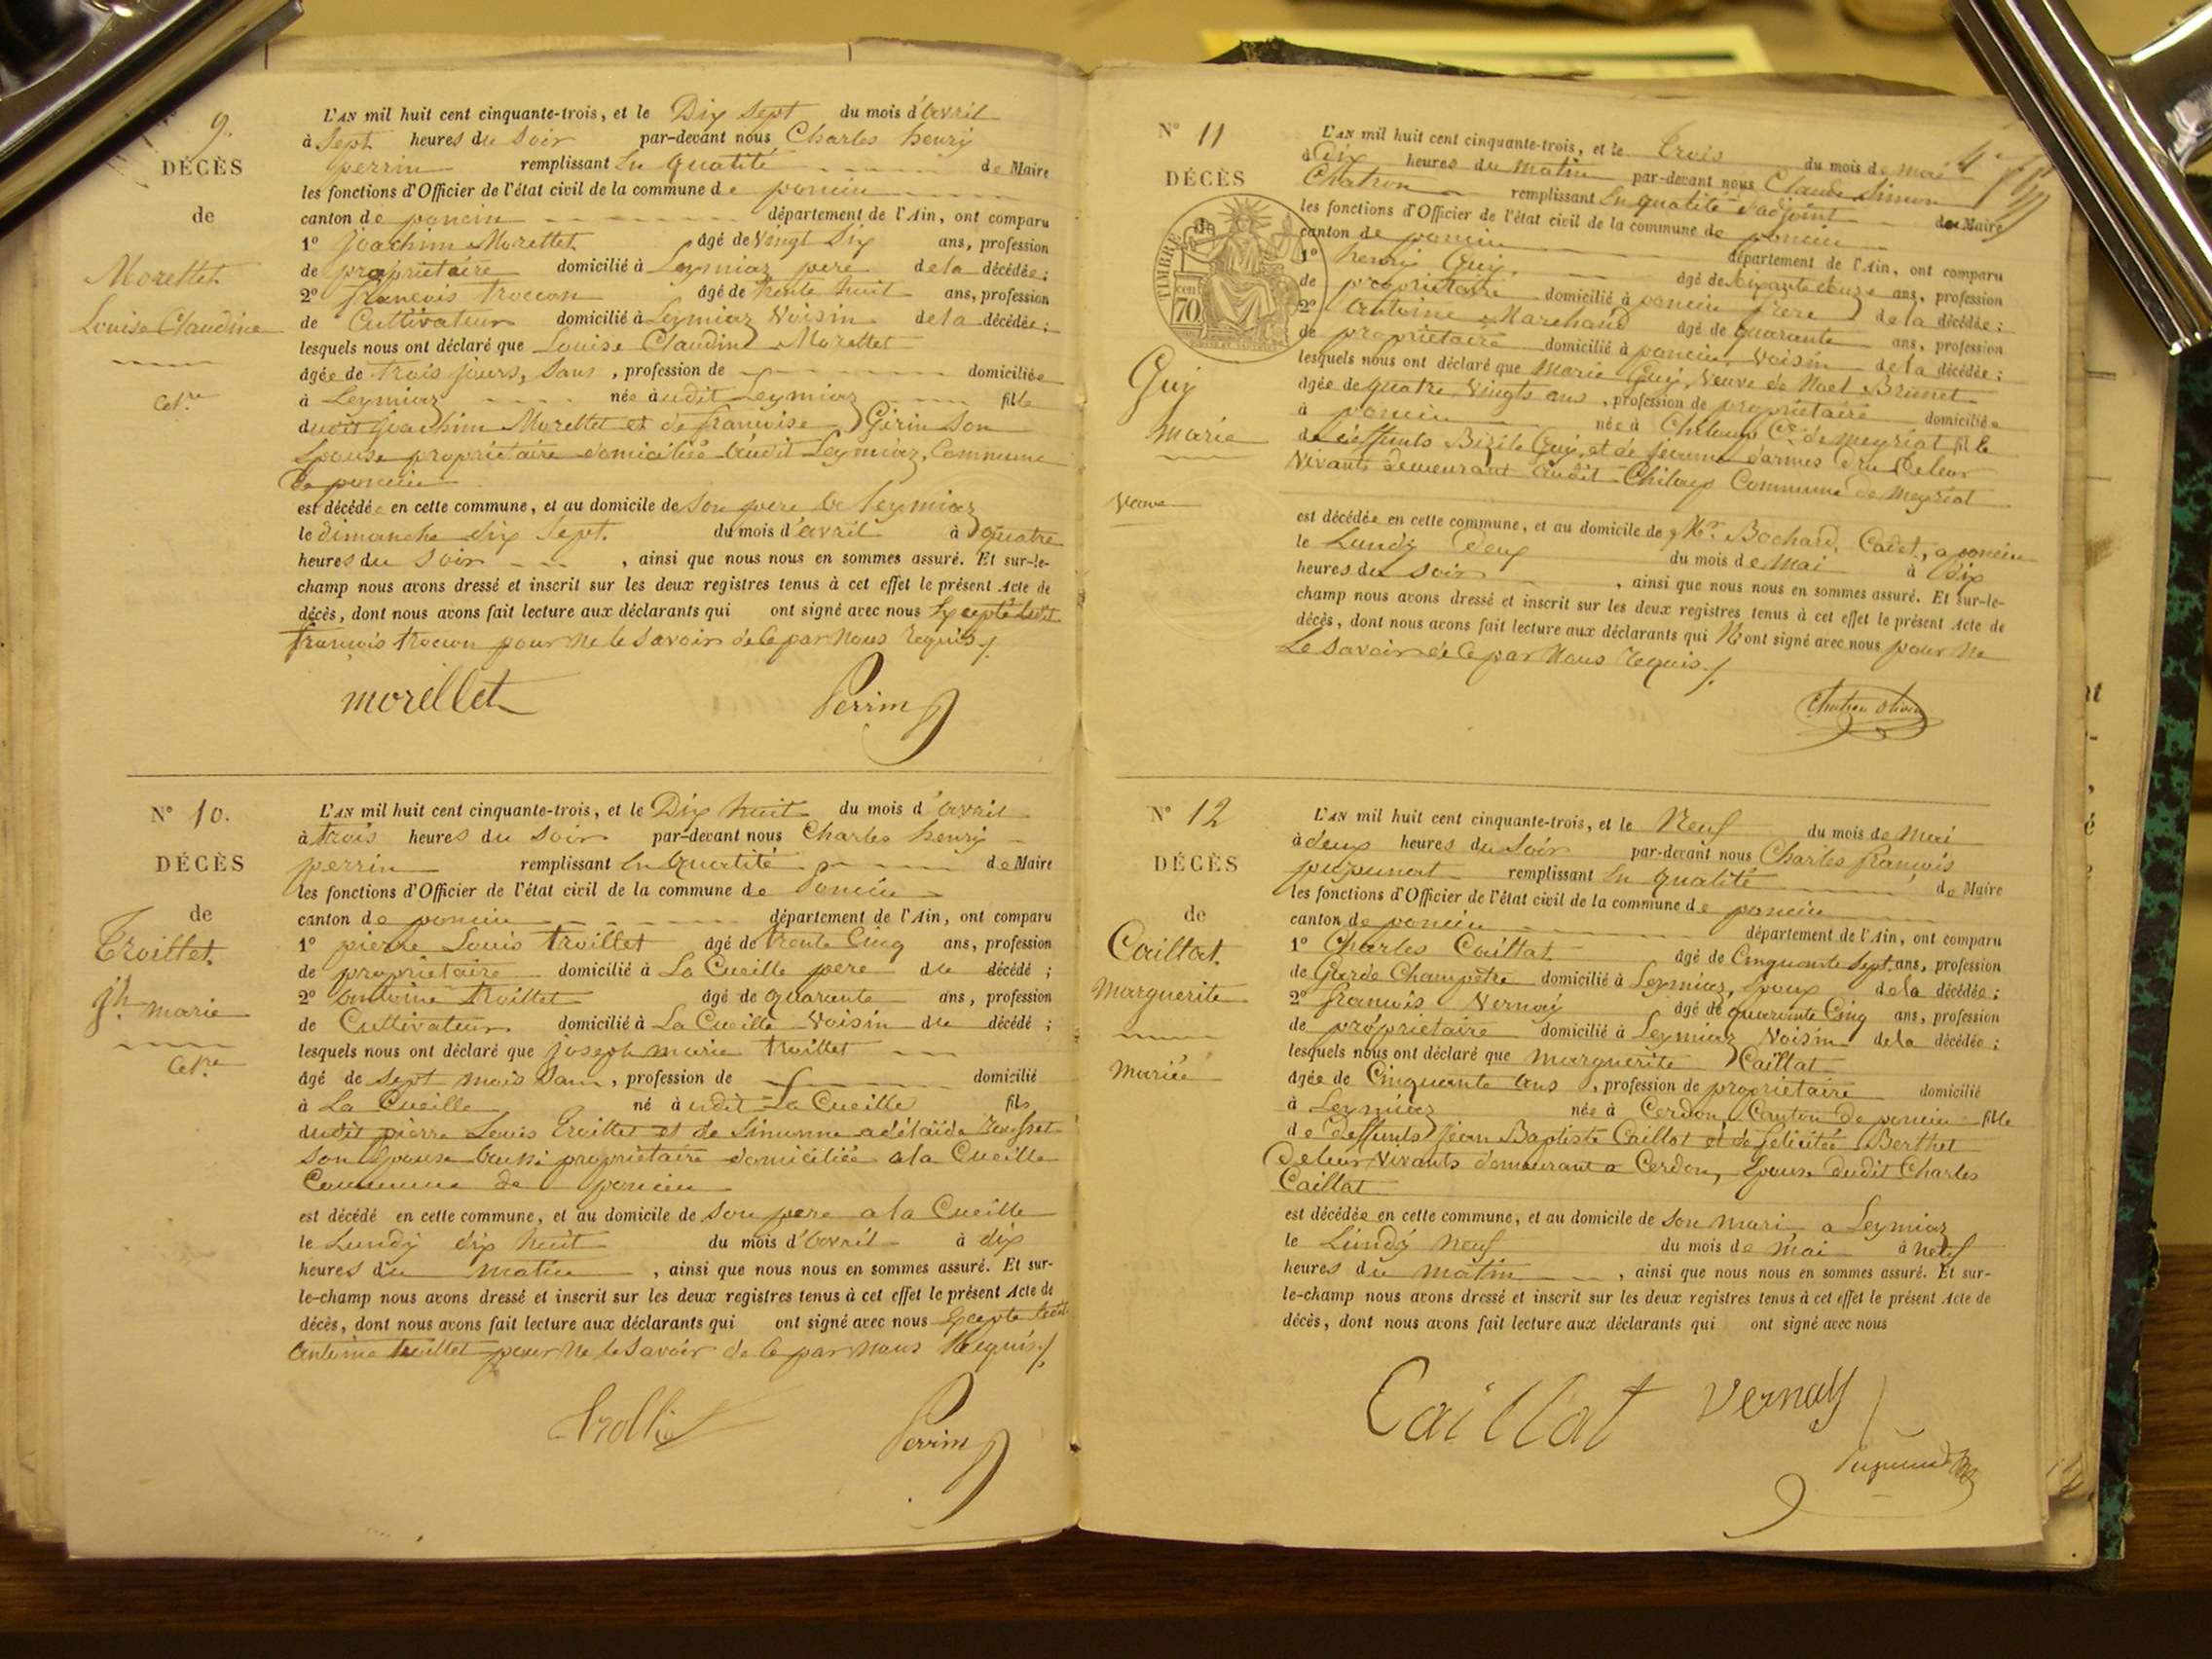 9.
DÉCÈS
de
Morettet
Louise Claudine
Cel.re
L'AN mil huit cent cinquante-trois, et le Dix Sept du mois d'avril
à Sept heures du Soir par-devant nous Charles henry
perrin remplissant En qualité de Maire
les fonctions d'Officier de l'état civil de la commune de poncin
canton de poncin département de l'Ain, ont comparu
1° joachim Morettet âgé de vingt Six ans, profession
de propriétaire domicilié à Leymiaz pere de la décédée;
2° françois troccon âgé de trente huit ans, profession
de Cultivateur domicilié à Leymiaz Voisin de la décédée;
lesquels nous ont déclaré que Louise Claudine Morettet
âgée de trois jours, Sans, profession de domiciliée
à Leymiaz née audit Leymiaz fille
dudit joachim Morettet et de françoise Girin Son
Epouse propriétaire domiciliée audit Leymiaz, Commune
De poncin
est décédée en cette commune, et au domicile de Son pere a Leymiaz
le dimanche dix Sept du mois d'avril à quatre
heures du Soir , ainsi que nous nous en sommes assuré. Et sur-le-
champ nous avons dressé et inscrit sur les deux registres tenus à cet effet le présent Acte de
décès, dont nous avons fait lecture aux déclarants qui ont signé avec nous Excepté ledit
françois troccon pour ne le Savoir de ce par Nous requis./.
morellet Perrin
N° 10.
DÉCÈS
de
Troillet
jh. marie
Cel.re
L'AN mil huit cent cinquante-trois, et le Dix huit du mois d'avril
à trois heures du Soir par-devant nous Charles henry
perrin remplissant En qualité de Maire
les fonctions d'Officier de l'état civil de la commune de Poncin
canton de poncin département de l'Ain, ont comparu
1° pierre Louis troillet âgé de trente Cinq ans, profession
de propriétaire domicilié à La Cueille pere du décédé;
2° antoine troillet âgé de quarante ans, profession
de Cultivateur domicilié à La Cueille Voisin du décédé;
lesquels nous ont déclaré que joseph marie troillet
âgé de sept mois Sans, profession de domicilié
à La Cueille né à udit La Cueille fils
dudit pierre Louis troillet et de Simonne adélaïde
Son Epouse aussi propriétaire domiciliée a la Cueille
Commune de poncin
est décédé en cette commune, et au domicile de Son pere a la Cueille
le Lundy dix huit du mois d'avril à dix
heures du matin , ainsi que nous nous en sommes assuré. Et sur-
le-champ nous avons dressé et inscrit sur les deux registres tenus à cet effet le présent Acte de
décès, dont nous avons fait lecture aux déclarants qui ont signé avec nous Excepté ledit
antoine troillet pour ne le Savoir de ce par nous Requis./.
Perrin
N° 11
DÉCÈS
de
TIMBRE
70 cen
Guy
Marie
Veuve
L'AN mil huit cent cinquante-trois, et le trois du mois de mai
à Dix heures du matin par-devant nous Claude Simon
Chatron remplissant En qualité d'adjoint de Maire
les fonctions d'Officier de l'état civil de la commune de poncin
canton de poncin département de l'Ain, ont comparu
1° henry Guy. âgé de ans, profession
de propriétaire domicilié à poncin frere de la décédée;
2° antoine Marchand âgé de quarante ans, profession
de propriétaire domicilié à poncin Voisin de la décédée;
lesquels nous ont déclaré que Marie Guy, Veuve de Noel Brunet
âgée de quatre Vingts ans, profession de propriétaire domiciliée
à poncin née à Chiloup Cne. de meyriat fille
de deffunts Guy, et de De leur
Vivants demeurant audit Chiloup Commune de Meyriat
est décédée en cette commune, et au domicile de Mr. Bochard, Cadet, a poncin
le Lundy Deux du mois de Mai à Dix
heures du soir , ainsi que nous nous en sommes assuré. Et sur-le-
champ nous avons dressé et inscrit sur les deux registres tenus à cet effet le présent Acte de
décès, dont nous avons fait lecture aux déclarants qui N'ont signé avec nous pour ne
Le Savoir de ce par Nous requis./.
N° 12
DÉCÈS
de
Caillat.
Marguerite
Mariée
L'AN mil huit cent cinquante-trois, et le Neuf du mois de Mai
à deux heures du Soir par-devant nous Charles françois
pugunat remplissant En qualité de Maire
les fonctions d'Officier de l'état civil de la commune de poncin
canton de poncin département de l'Ain, ont comparu
1° Charles Caillat. âgé de Cinquante Sept ans, profession
de Garde Champêtre domicilié à Leymiaz, Epoux de la décédée;
2° françois Vernay âgé de quarante Cinq ans, profession
de propriétaire domicilié à Leymiaz Voisin de la décédée;
lesquels nous ont déclaré que Marguerite Caillat
âgée de Cinquante ans, profession de propriétaire domicilié
à Leymiaz née à Cerdon, Canton de poncin fille
de deffunts jean Baptiste Caillat et de félicitée Berthet
De leur Vivants demeurant a Cerdon, Epouse dudit Charles
Caillat
est décédée en cette commune, et au domicile de son mari a Leymiaz
le Lundy Neuf du mois de Mai à neuf
heures du matin , ainsi que nous nous en sommes assuré. Et sur-
le-champ nous avons dressé et inscrit sur les deux registres tenus à cet effet le présent Acte de
décès, dont nous avons fait lecture aux déclarants qui ont signé avec nous
Caillat Vernay